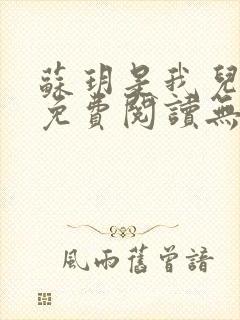 蘇玥是我兒
免費閱讀無
風雨舊曾諳